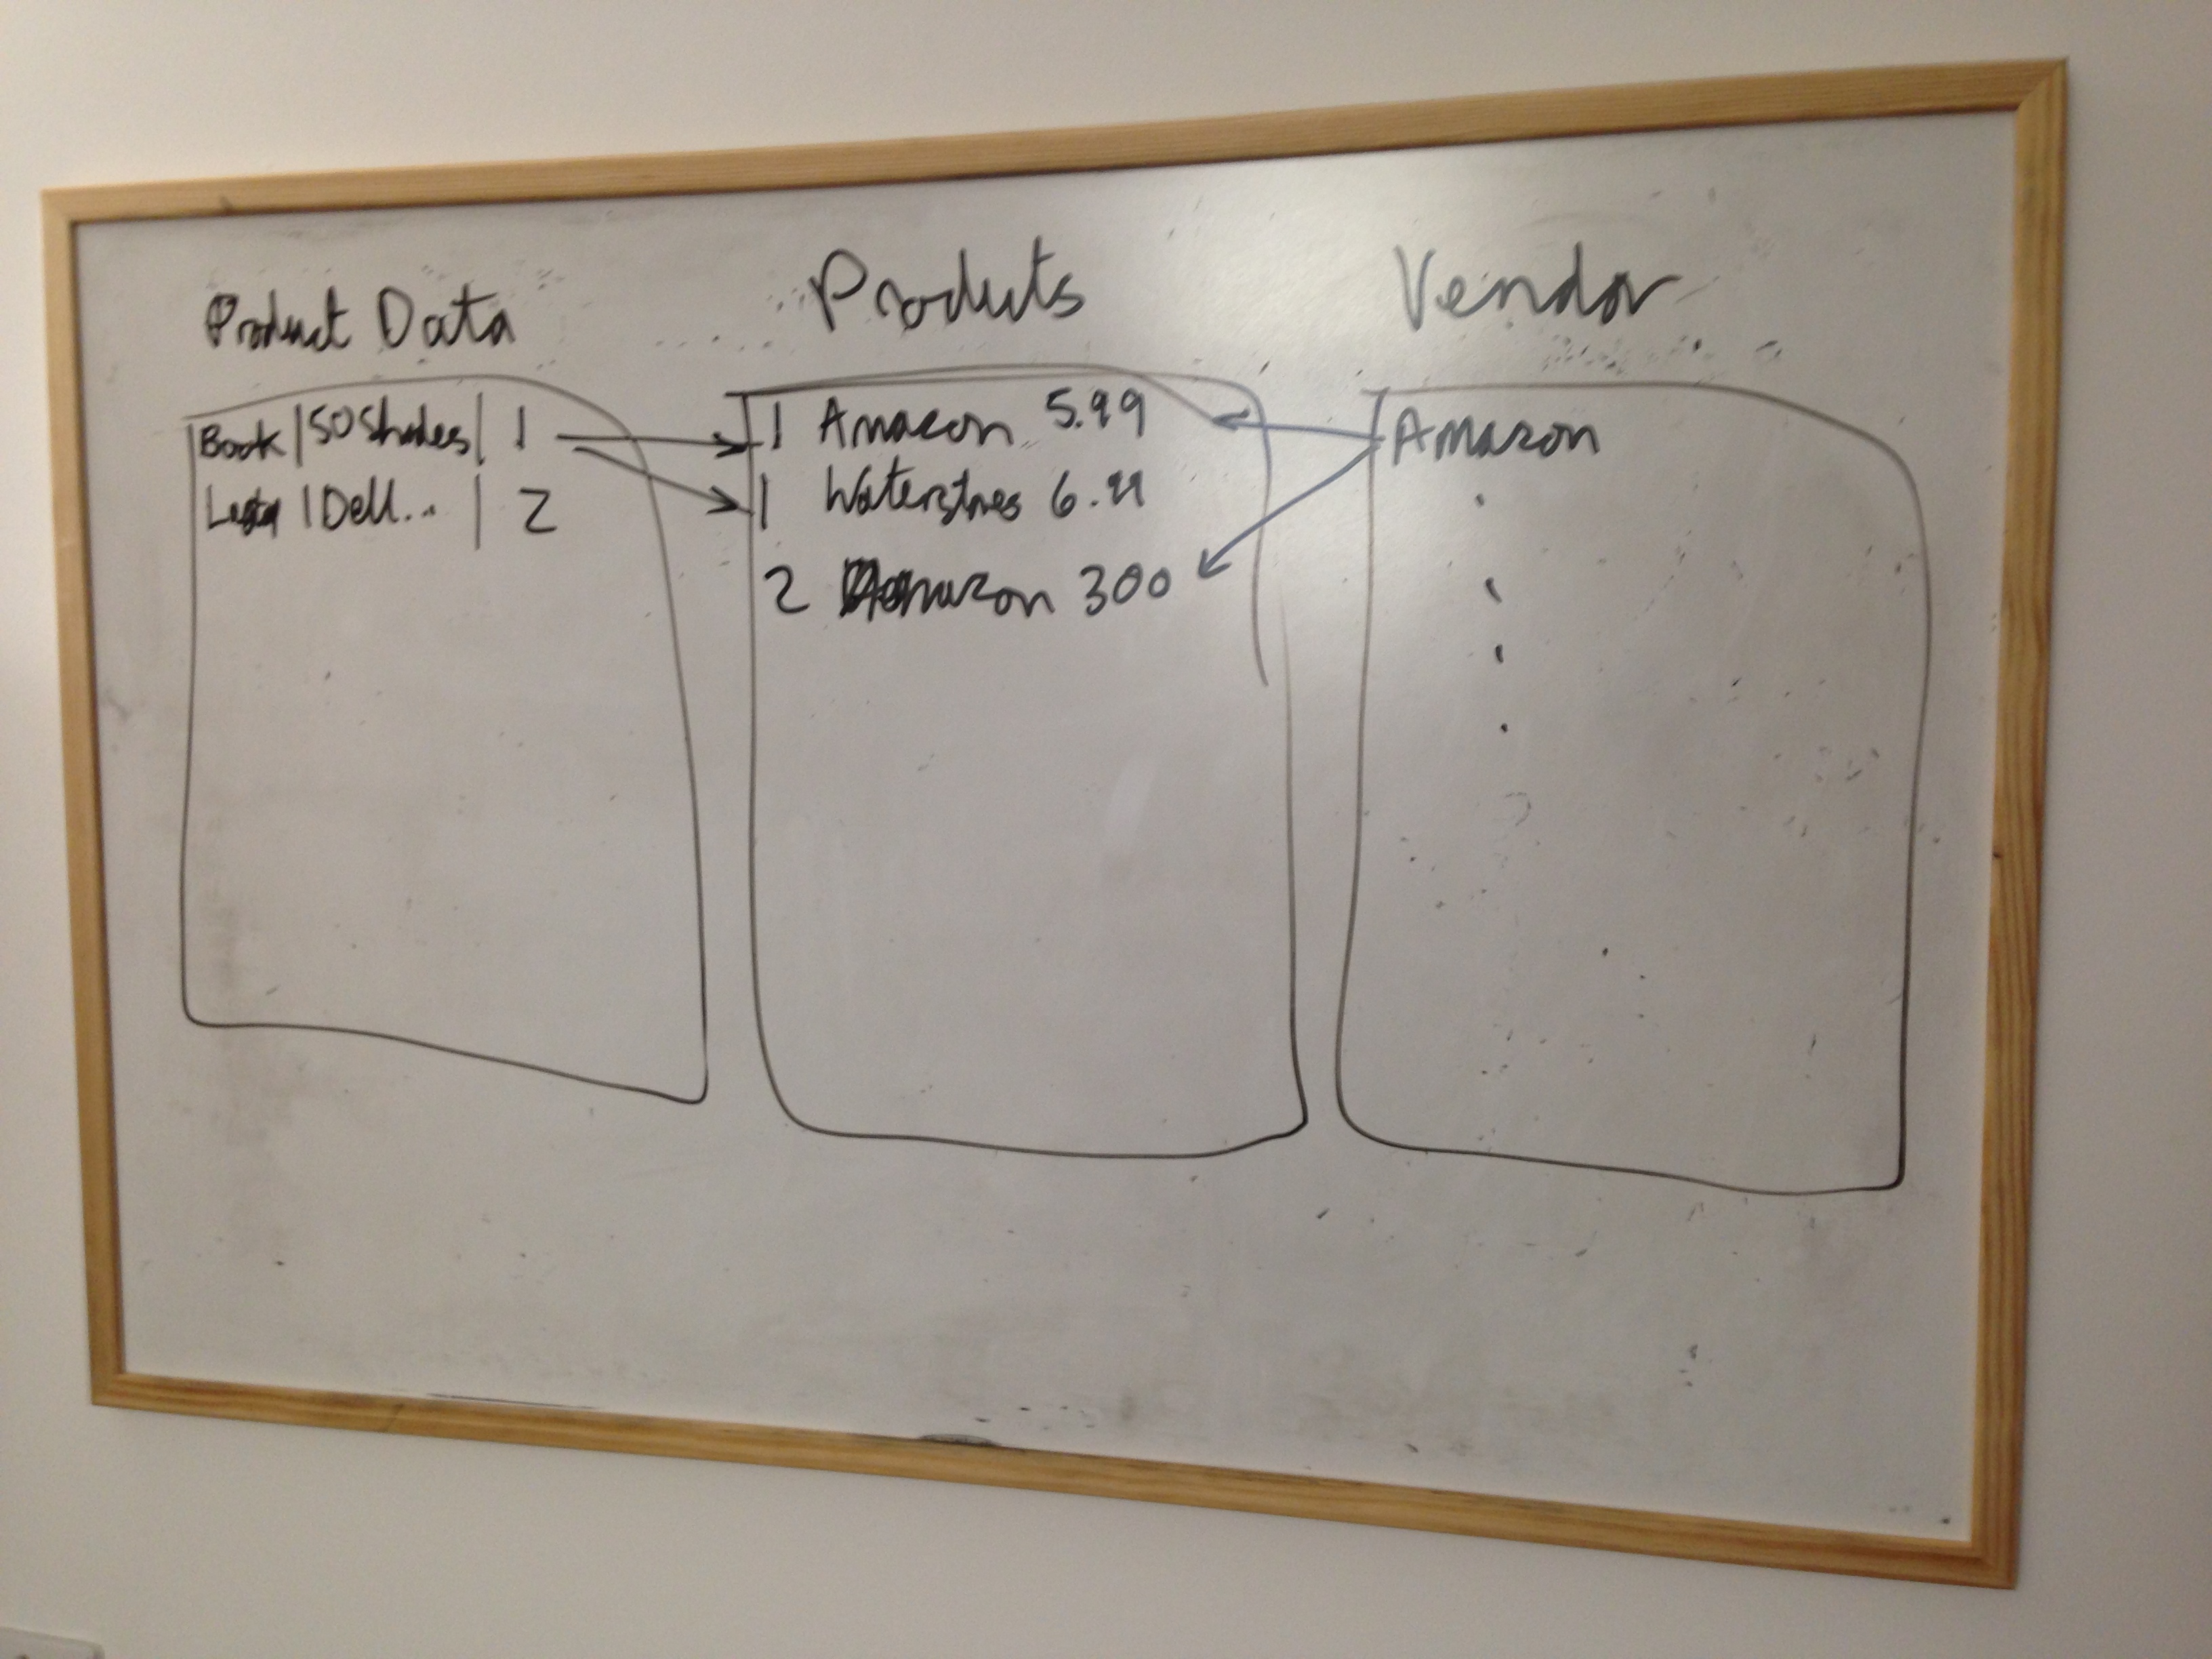 Product Data
Book | 50 Shades | 1
| Dell... | 2
Produts
1 Amazon 5.99
1 Waterstones 6.99
2 Amazon 300
Vendor
Amazon